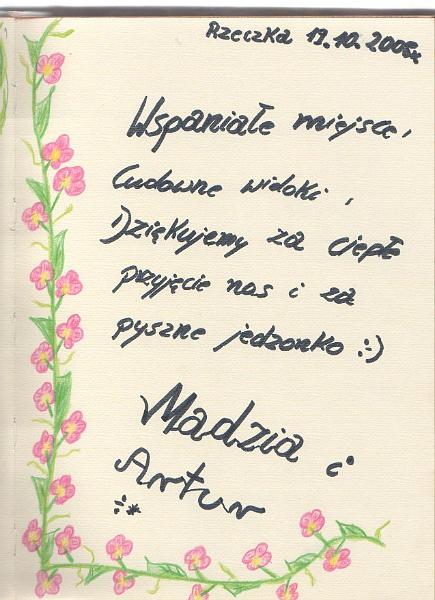 Rzeczka 19.10.2008r.
Wspaniałe miejsce,
Cudowne widoki,
Dziękujemy za ciepłe
przyjęcie nas i za
pyszne jedzonko :-)
Madzia i
Artur
:*